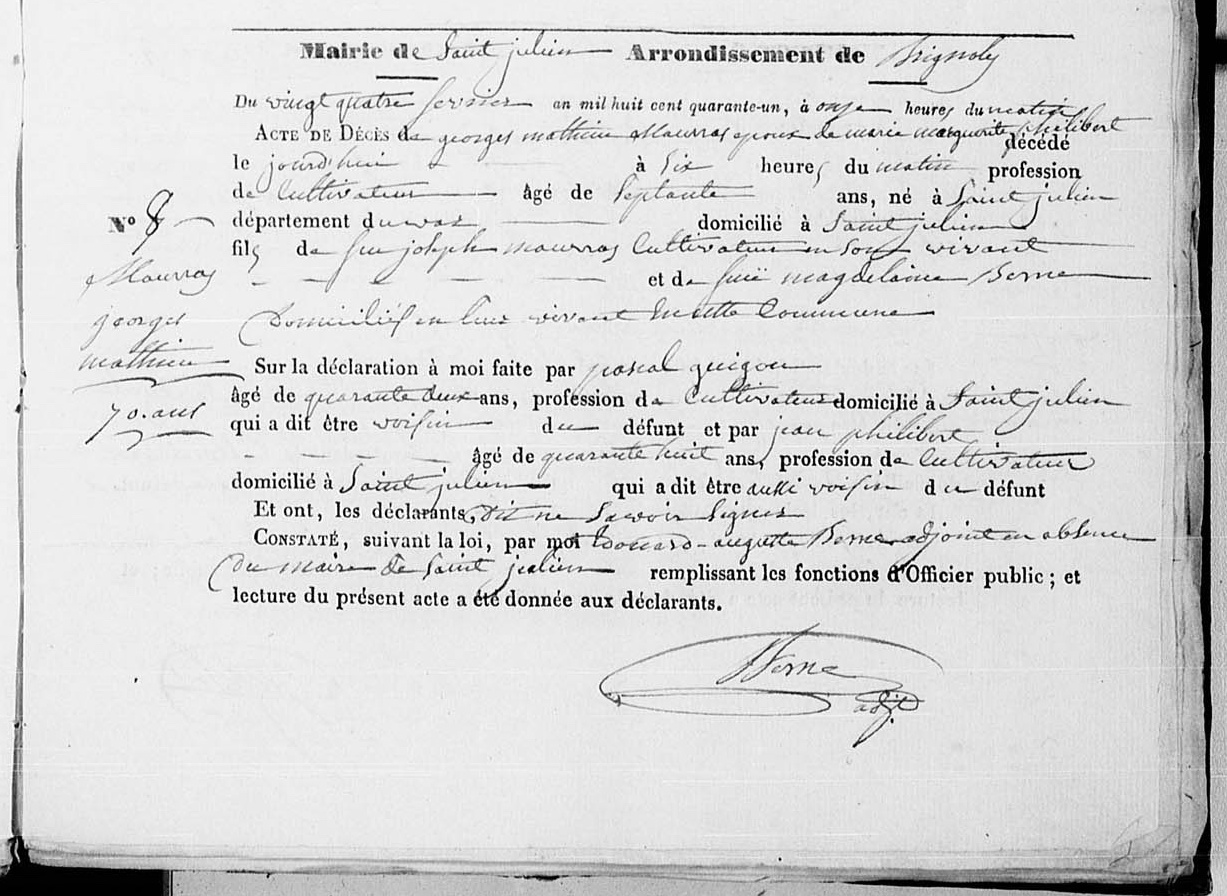 Mairie de Saint julien Arrondissement de Brignoles
Du vingt quatre fevrier an mil huit cent quarante-un, à onze heures du matin
ACTE DE DÉCÈS de georges mathieu Maurras epoux de marie marguerite philibert
décédé
le jourd'hui à six heures du matin profession
de Cultivateur âgé de Septante ans, né à Saint julien
département du var domicilié à Saint julien
fils de feu joseph maurras Cultivateur en son vivant
et de feuë magdelaine Berne
Domiciliés en leur vivant en cette Commune
N° 8
Maurras
georges
mathieu
70. ans
Sur la déclaration à moi faite par pascal guigou
âgé de quarante deux ans, profession de Cultivateur domicilié à Saint julien
qui a dit être voisin du défunt et par jean philibert
âgé de quarante huit ans, profession de Cultivateur
domicilié à Saint julien qui a dit être aussi voisin du défunt
Et ont, les déclarants, dit ne Savoir Signer
CONSTATÉ, suivant la loi, par moi Edouard-auguste Berne adjoint en absence
Du maire de Saint julien remplissant les fonctions d'Officier public ; et
lecture du présent acte a été donnée aux déclarants.
Berne
adjt